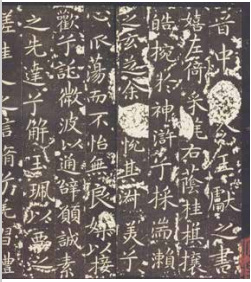 晉中令王獻之書
嬉左倚采旄右蔭桂旗攘
皓捥於神滸兮採湍瀨
之玄芝余悅其淑美兮
心振蕩而不怡無良媒以接
歡兮託微波以通辭願誠素
之先達兮解玉珮以要之
嗟佳人之信脩兮羌習禮